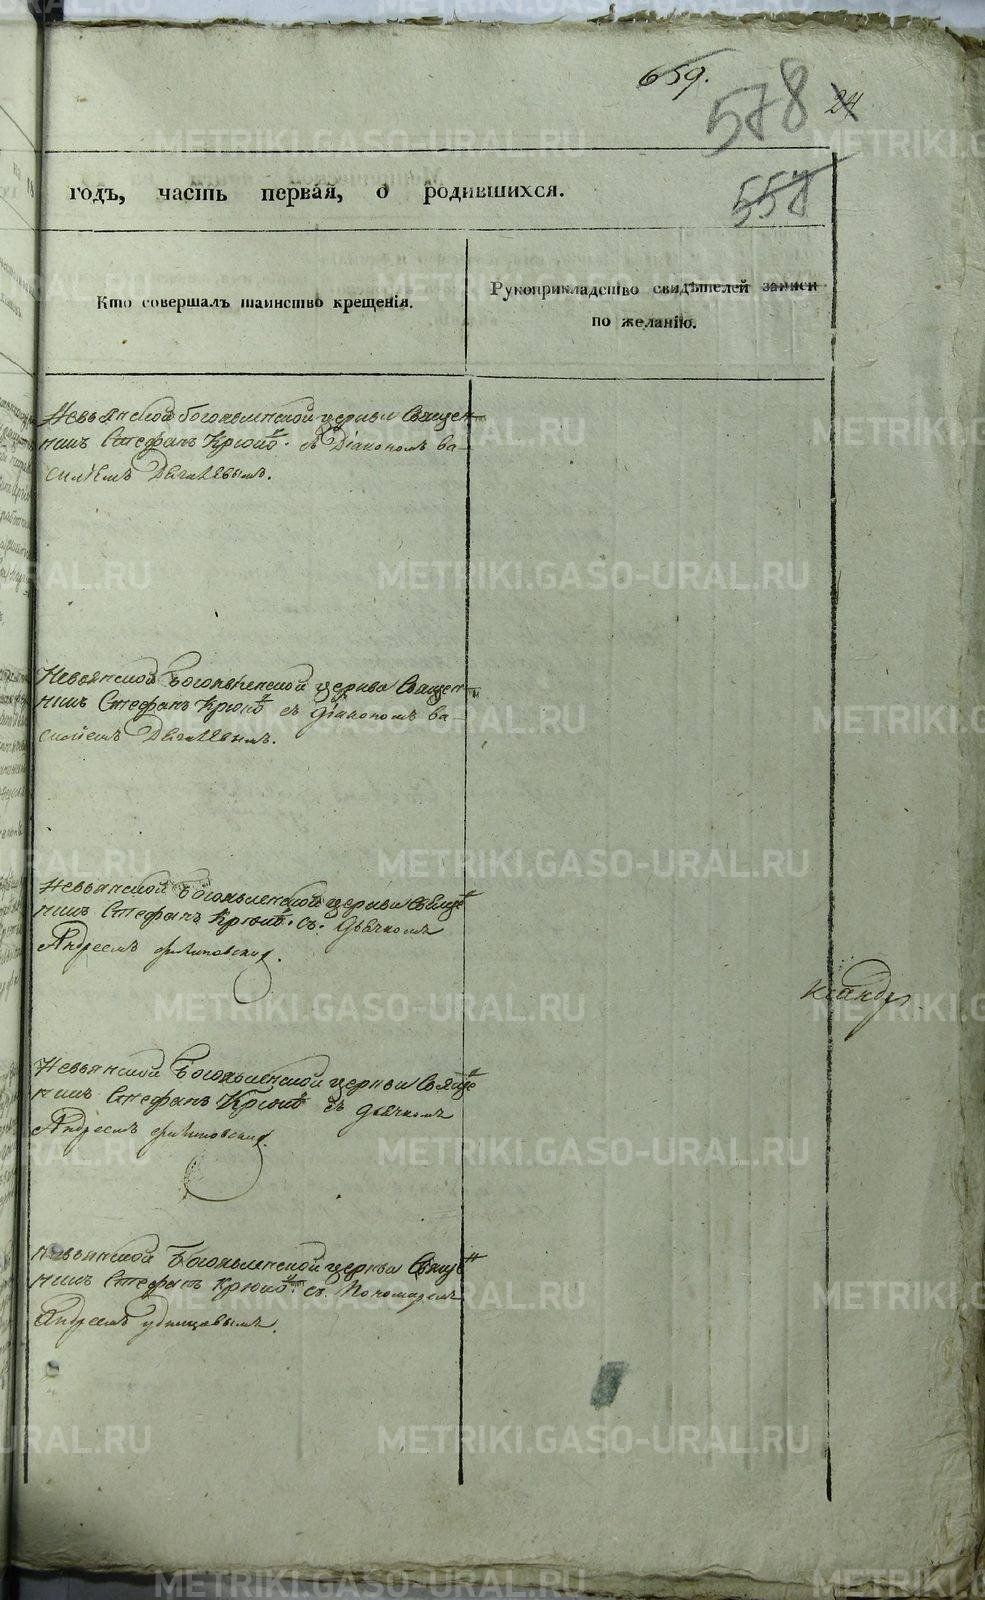 659.
578
24
557
годъ, часть первая, о родившихся.
Кто совершалъ таинство крещенія.
Рукоприкладство свидѣтелей записи
по желанію.
Невьянской богоявленской церкви Священ
никъ Стефанъ Крюко съ Діакономъ Ва-
силіемъ
Невьянской Богоявленской церкви Священ
никъ Стефанъ Крюко съ Діакономъ Ва-
силіемъ
Невьянской Богоявленской церкви Свяще
никъ Стефанъ Крюко съ Дьячкомъ
Андреемъ
Невьянской Богоявленской церкви Свяще
никъ Стефанъ Крюко съ Дьячкомъ
Андреемъ
Невьянской Богоявленской церкви Свяще
никъ Стефанъ Крюко съ Пономаремъ
Андреемъ Удинцовымъ.
ксандр
METRIKI.GASO-URAL.RU